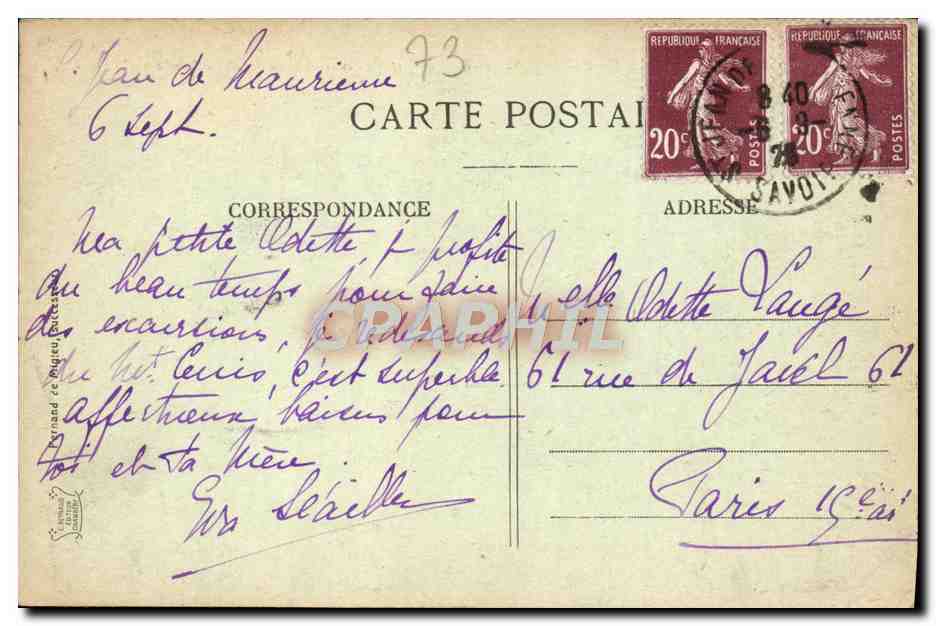 St Jean de Maurienne
6 Sept.
73
CARTE POSTALE
REPUBLIQUE FRANÇAISE
20c POSTES
REPUBLIQUE FRANÇAISE
20c POSTES
ST JEAN DE MAURIENNE
8 40
6 9
SAVOIE
CORRESPONDANCE
ADRESSE
Ma petite Odette je profite
du beau temps pour faire
des excursions, je redescends
du Mt Cenis, c'est superbe
affectueux baisers pour
toi et ta Mère.
Melle Odette Laugé
61 rue de Javel 61
Paris 15e arrt
Fernand de Migieu, successeur
L. REYNAUD
EDITEUR
CHAMBERY
CPAPHIL